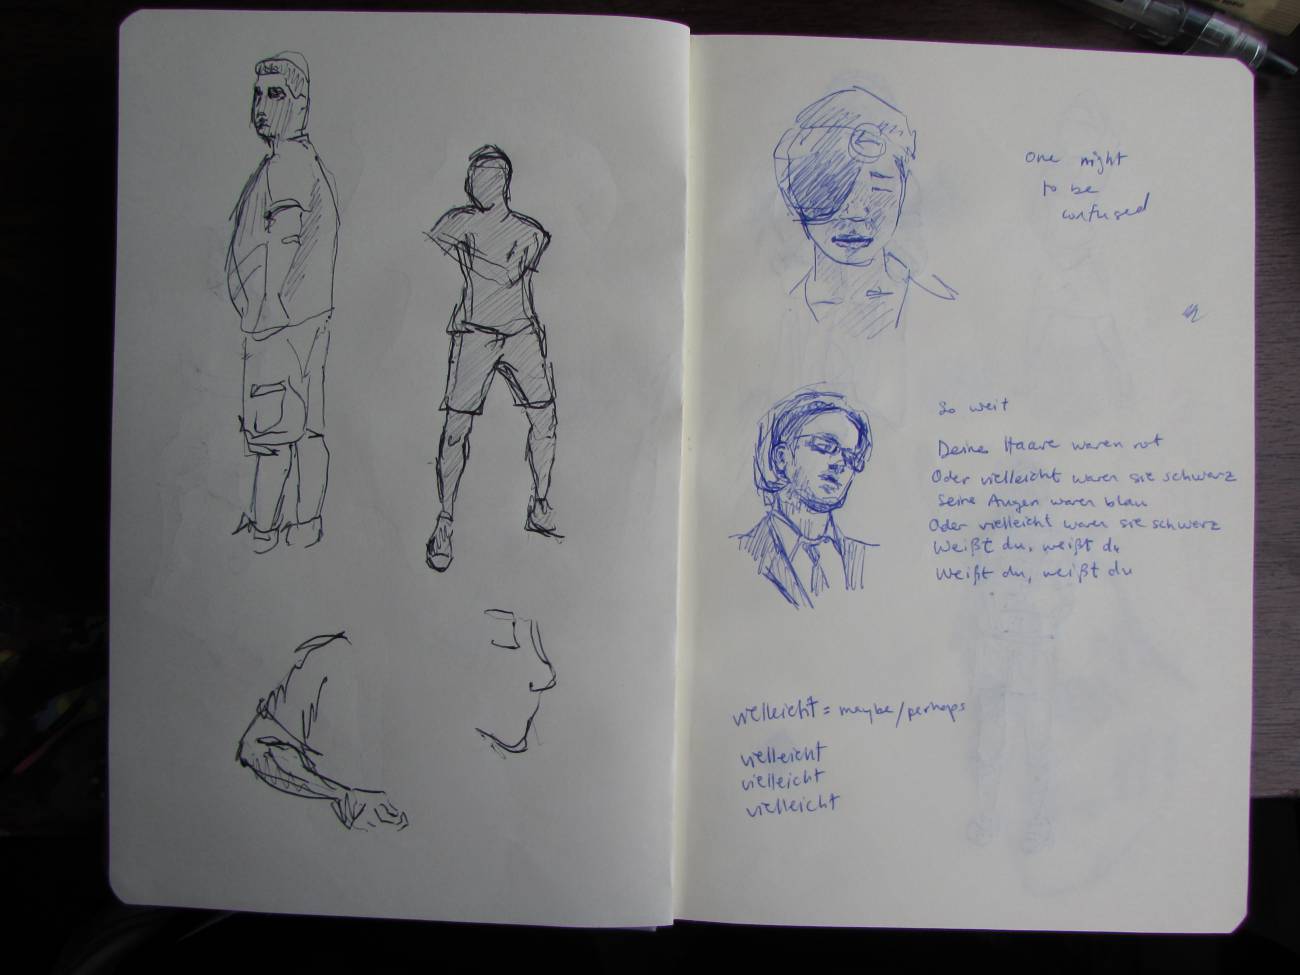 One might
to be
confused
So weit
Deine Haare waren rot
Oder vielleicht waren sie schwarz
Seine Augen waren blau
Oder vielleicht waren sie schwarz
Weißt du, weißt du
Weißt du, weißt du
vielleicht = maybe/perhaps
vielleicht
vielleicht
vielleicht